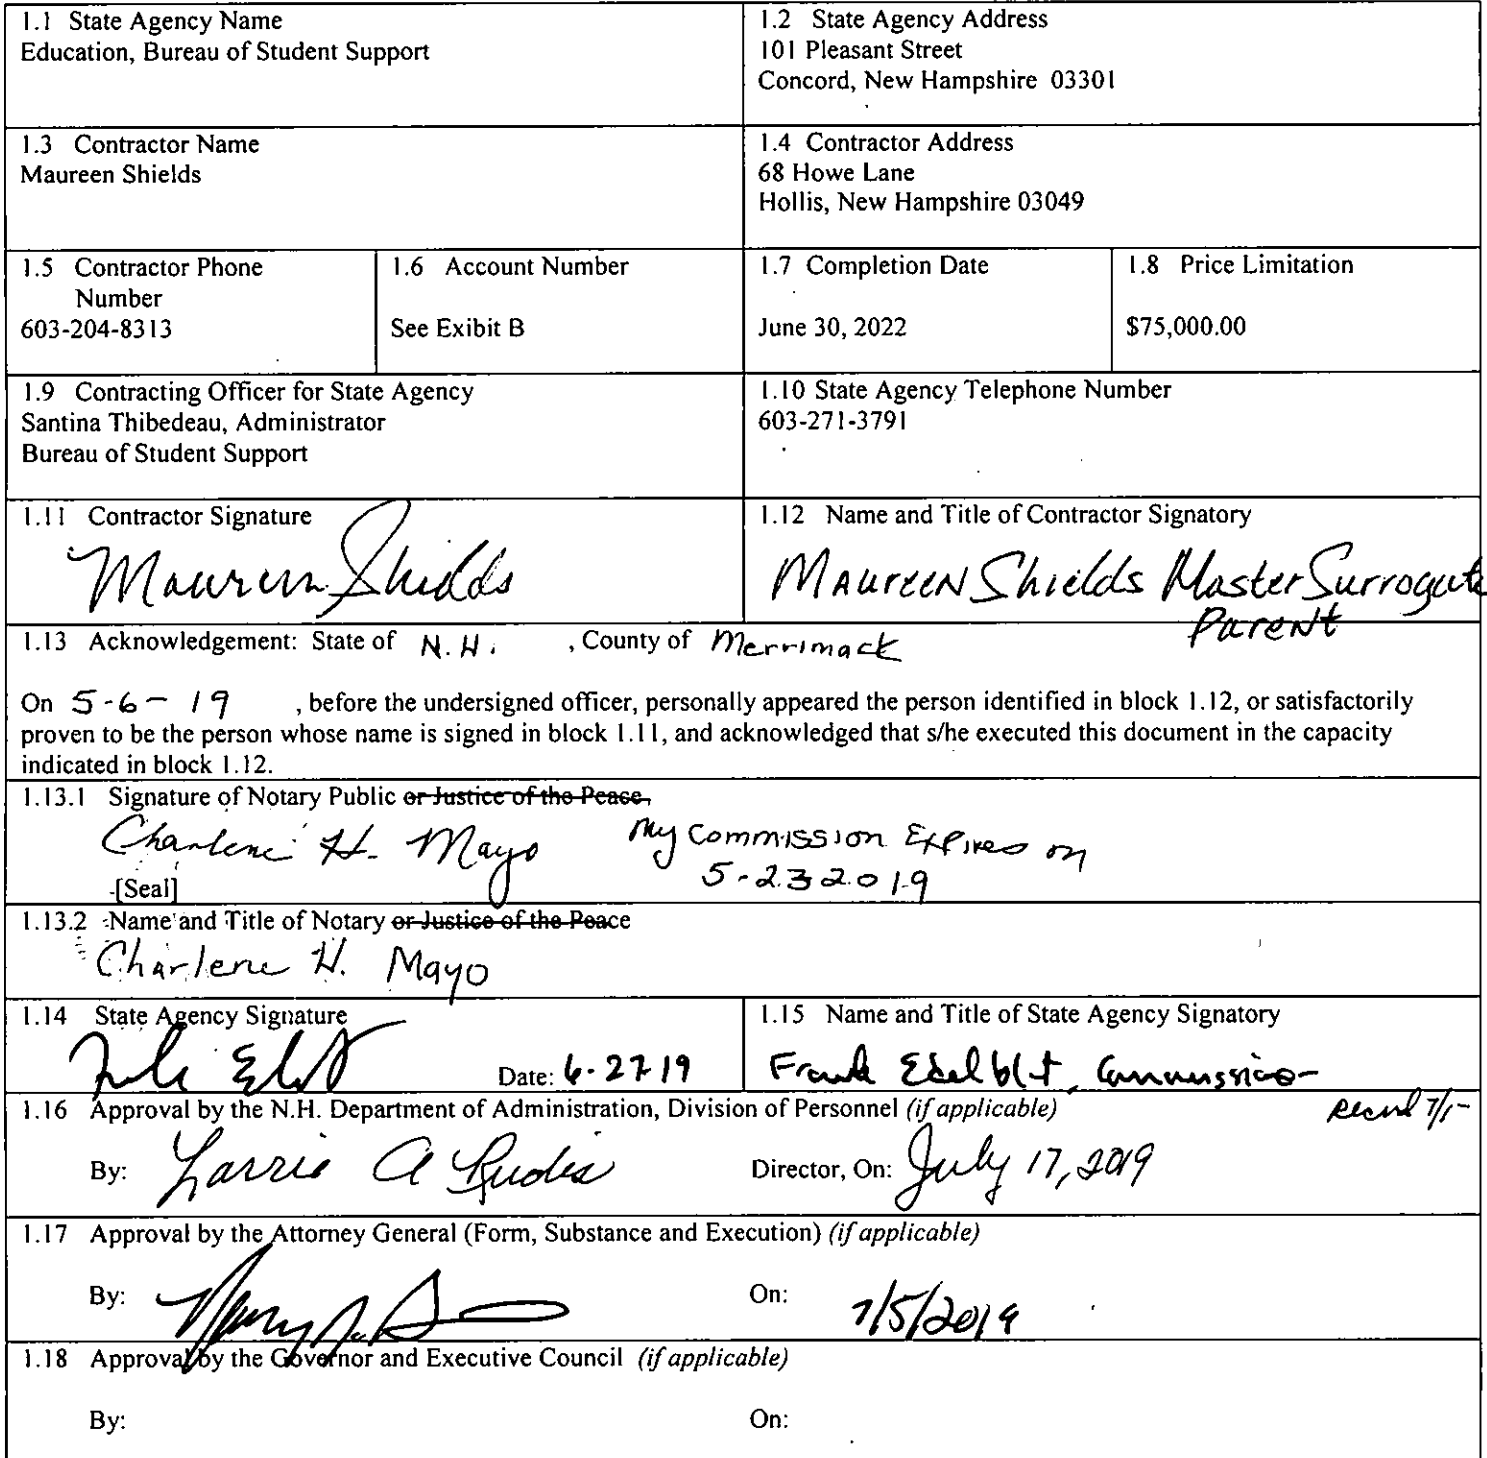 1.1 State Agency Name
Education, Bureau of Student Support
1.2 State Agency Address
101 Pleasant Street
Concord, New Hampshire 03301
1.3 Contractor Name
Maureen Shields
1.4 Contractor Address
68 Howe Lane
Hollis, New Hampshire 03049
1.5 Contractor Phone
Number
603-204-8313
1.6 Account Number
See Exibit B
1.7 Completion Date
June 30, 2022
1.8 Price Limitation
$75,000.00
1.9 Contracting Officer for State Agency
Santina Thibedeau, Administrator
Bureau of Student Support
1.10 State Agency Telephone Number
603-271-3791
1.11 Contractor Signature
Maureen Shields
1.12 Name and Title of Contractor Signatory
Maureen Shields Master Surrogate
Parent
1.13 Acknowledgement: State of N.H. , County of Merrimack
On 5-6-19 , before the undersigned officer, personally appeared the person identified in block 1.12, or satisfactorily
proven to be the person whose name is signed in block 1.11, and acknowledged that s/he executed this document in the capacity
indicated in block 1.12.
1.13.1 Signature of Notary Public or Justice of the Peace,
Charlene H. Mayo
My Commission Expires on
5-23 2019
[Seal]
1.13.2 Name and Title of Notary or Justice of the Peace
Charlene H. Mayo
1.14 State Agency Signature
Date: 6-27-19
1.15 Name and Title of State Agency Signatory
Frank Edelblut, Commissioner
1.16 Approval by the N.H. Department of Administration, Division of Personnel (if applicable)
By: Larrie A Rudis Director, On: July 17, 2019
1.17 Approval by the Attorney General (Form, Substance and Execution) (if applicable)
By: On: 7/5/2019
1.18 Approval by the Governor and Executive Council (if applicable)
By: On: